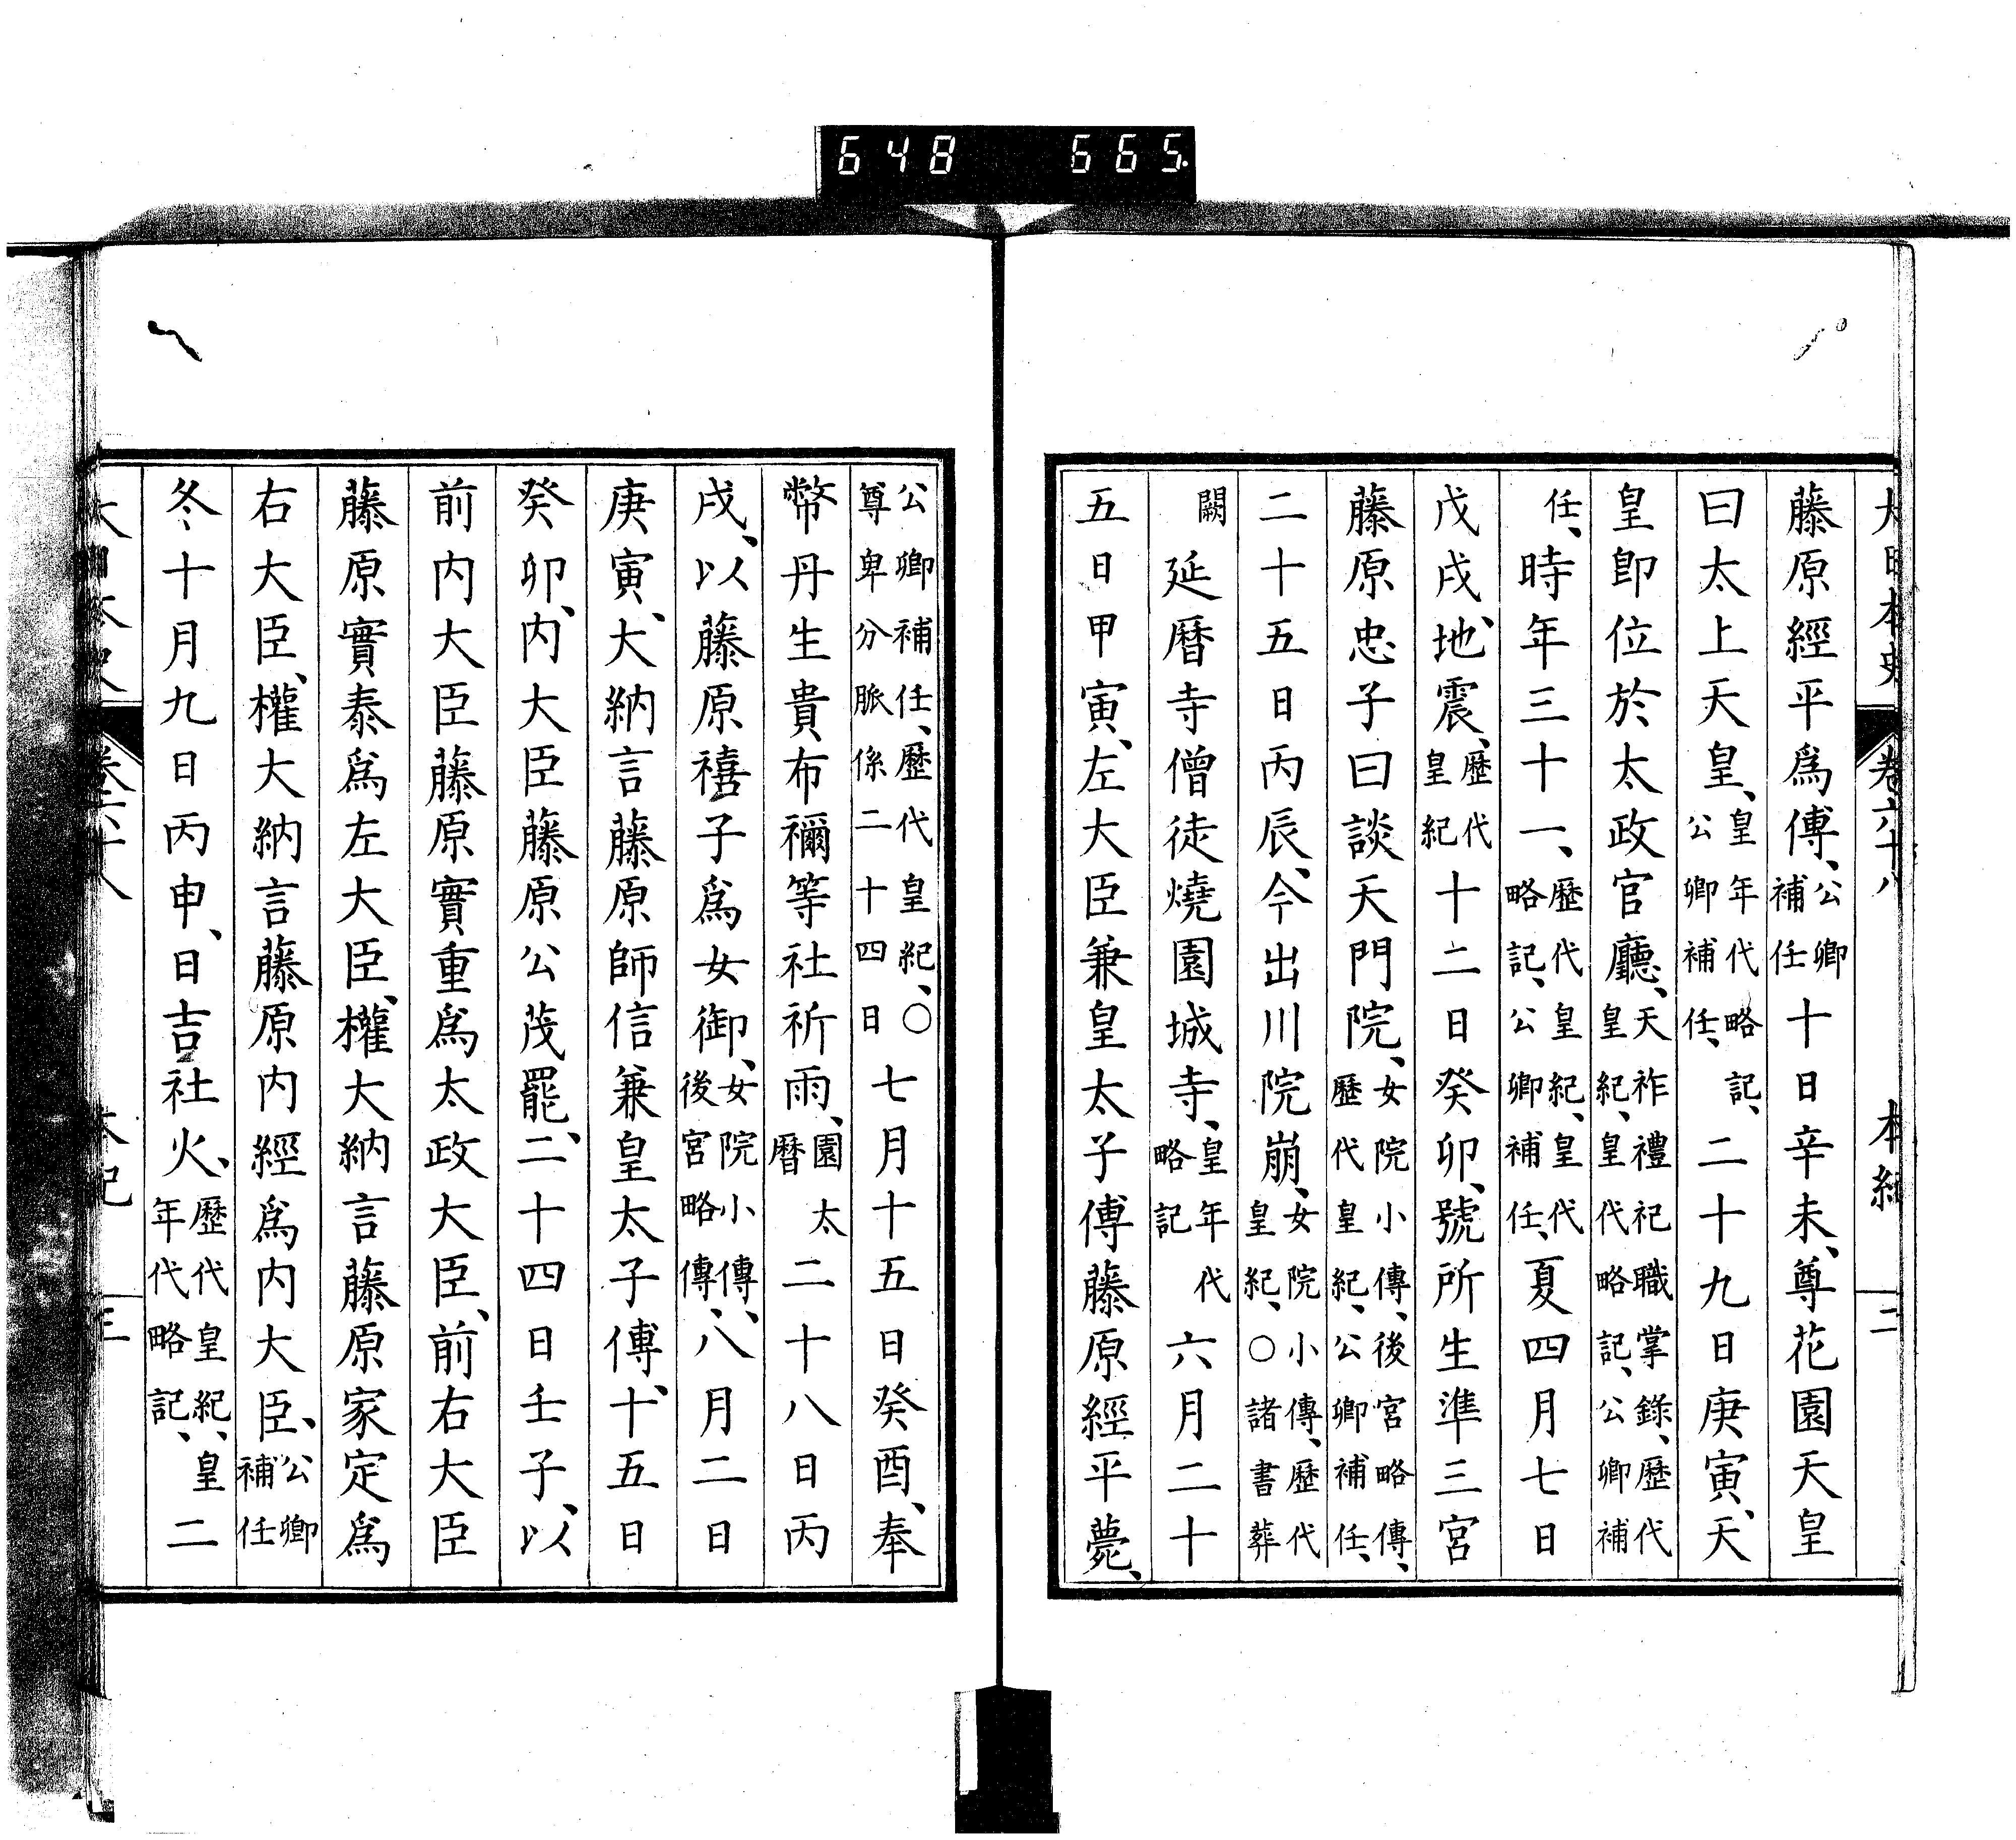 648 665
大日本史 卷六十八 本紀 二
藤原經平爲傅、公卿補任十日辛未、尊花園天皇
曰太上天皇、皇年代略記、公卿補任、二十九日庚寅、天
皇卽位於太政官廳、天祚禮祀職掌錄、歷代皇紀、皇代略記、公卿補
任、時年三十一、歷代皇紀、皇代略記、公卿補任、夏四月七日
戊戌、地震、歷代皇紀十二日癸卯、號所生準三宮
藤原忠子曰談天門院、女院小傳、後宮略傳、歷代皇紀、公卿補任、
二十五日丙辰、今出川院崩、女院小傳、歷代皇紀、○諸書葬
闕延曆寺僧徒燒園城寺、皇年代略記六月二十
五日甲寅、左大臣兼皇太子傅藤原經平薨、
公卿補任、歷代皇紀、○尊卑分脈係二十四日七月十五日癸酉、奉
幣丹生貴布禰等社祈雨、園太曆二十八日丙
戌、以藤原禧子爲女御、女院小傳、後宮略傳、八月二日
庚寅、大納言藤原師信兼皇太子傅、十五日
癸卯、内大臣藤原公茂罷、二十四日壬子、以
前内大臣藤原實重爲太政大臣、前右大臣
藤原實泰爲左大臣、權大納言藤原家定爲
右大臣、權大納言藤原内經爲内大臣、公卿補任
冬十月九日丙申、日吉社火、歷代皇紀、皇年代略記、二
大日本史 卷六十八 本紀 三